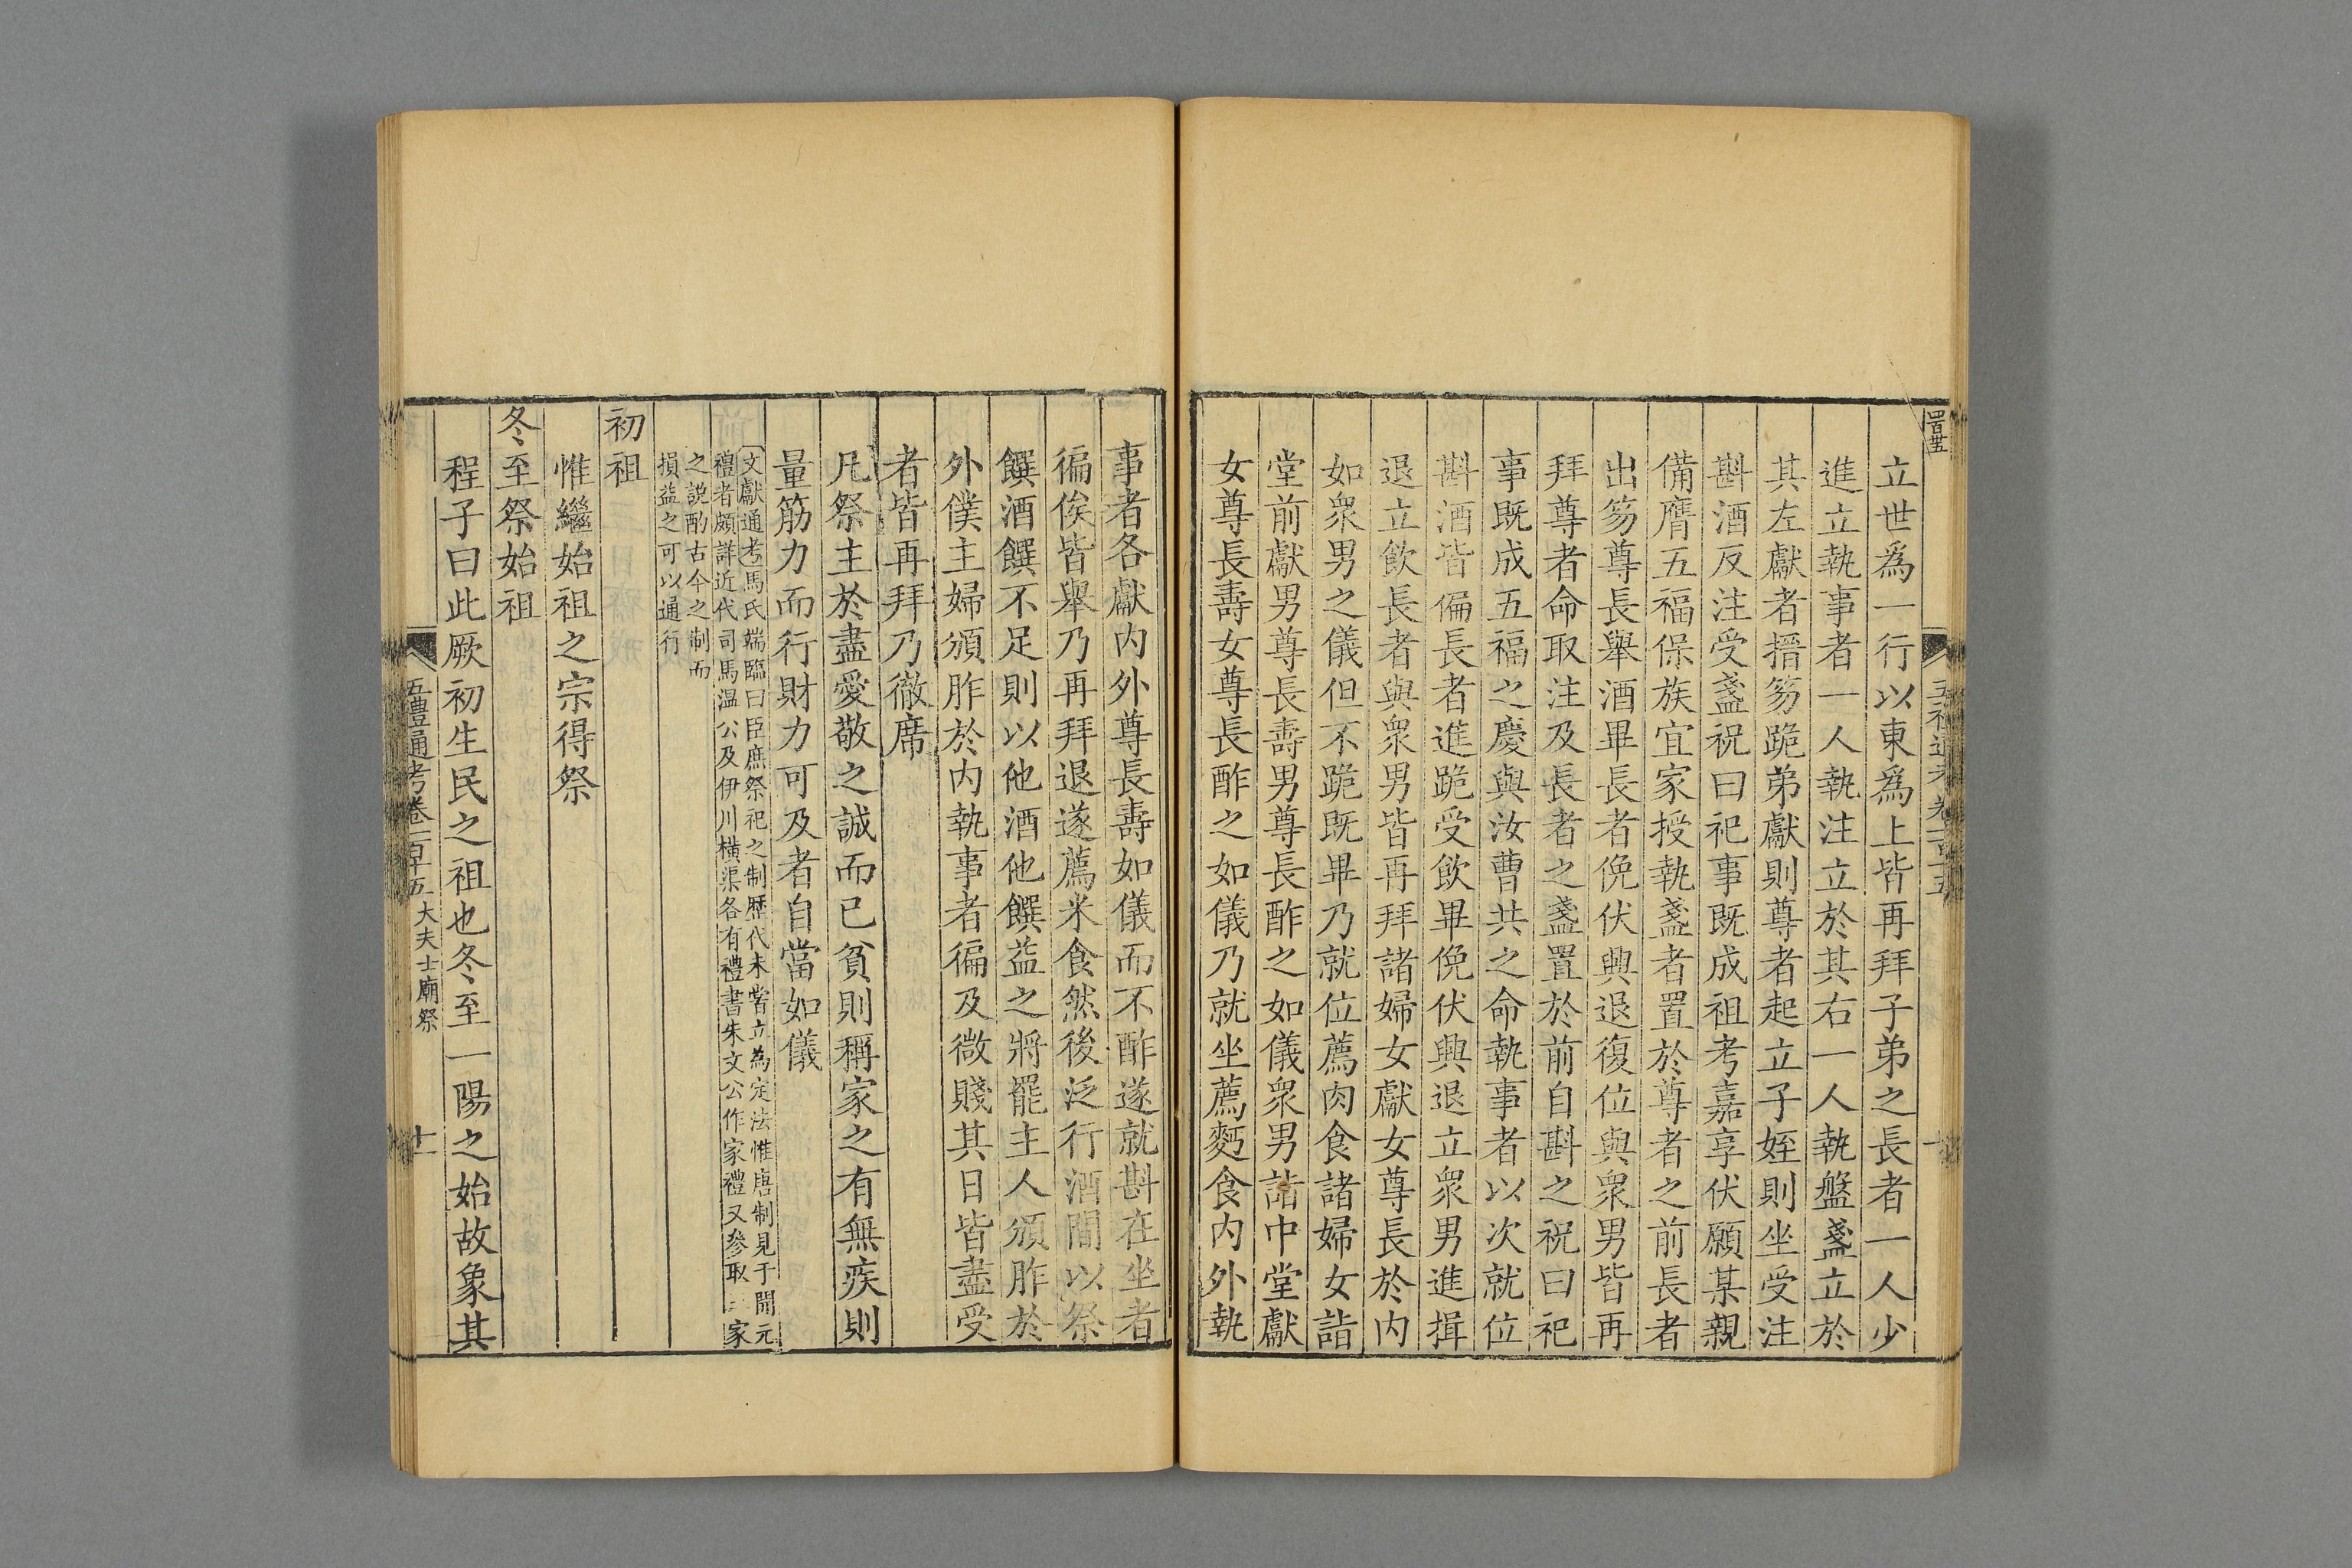 立世爲一行以東爲上皆再拜子弟之長者一人少
進立執事者一人執注立於其右一人執盤盞立於
其左獻者搢笏跪弟獻則尊者起立子姪則坐受注
斟酒反注受盞祝曰祀事既成祖考嘉享伏願某親
備膺五福保族宜家授執盞者置於尊者之前長者
出笏尊長舉酒畢長者俛伏興退復位與衆男皆再
拜尊者命取注及長者之盞置於前自斟之祝曰祀
事既成五福之慶與汝曹共之命執事者以次就位
斟酒皆徧長者進跪受飲畢俛伏興退立衆男進揖
退立飲長者與衆男皆再拜諸婦女獻女尊長於内
如衆男之儀但不跪既畢乃就位薦肉食諸婦女詣
堂前獻男尊長壽男尊長酢之如儀衆男詣中堂獻
女尊長壽女尊長酢之如儀乃就坐薦麪食内外執
事者各獻内外尊長壽如儀而不酢遂就斟在坐者
徧俟皆舉乃再拜退遂薦米食然後泛行酒間以祭
饌酒饌不足則以他酒他饌益之將罷主人頒胙於
外僕主婦頒胙於内執事者徧及微賤其日皆盡受
者皆再拜乃徹席
凡祭主於盡愛敬之誠而已貧則稱家之有無疾則
量筋力而行財力可及者自當如儀
文獻通考馬氏端臨曰臣庶祭祀之制歷代未嘗立為定法惟唐制見于開元
禮者頗詳近代司馬温公及伊川橫渠各有禮書朱文公作家禮又參取三家
之說酌古今之制而
損益之可以通行
初祖
惟繼始祖之宗得祭
冬至祭始祖
程子曰此厥初生民之祖也冬至一陽之始故象其
五禮通考卷一百十五 大夫士廟祭 十一